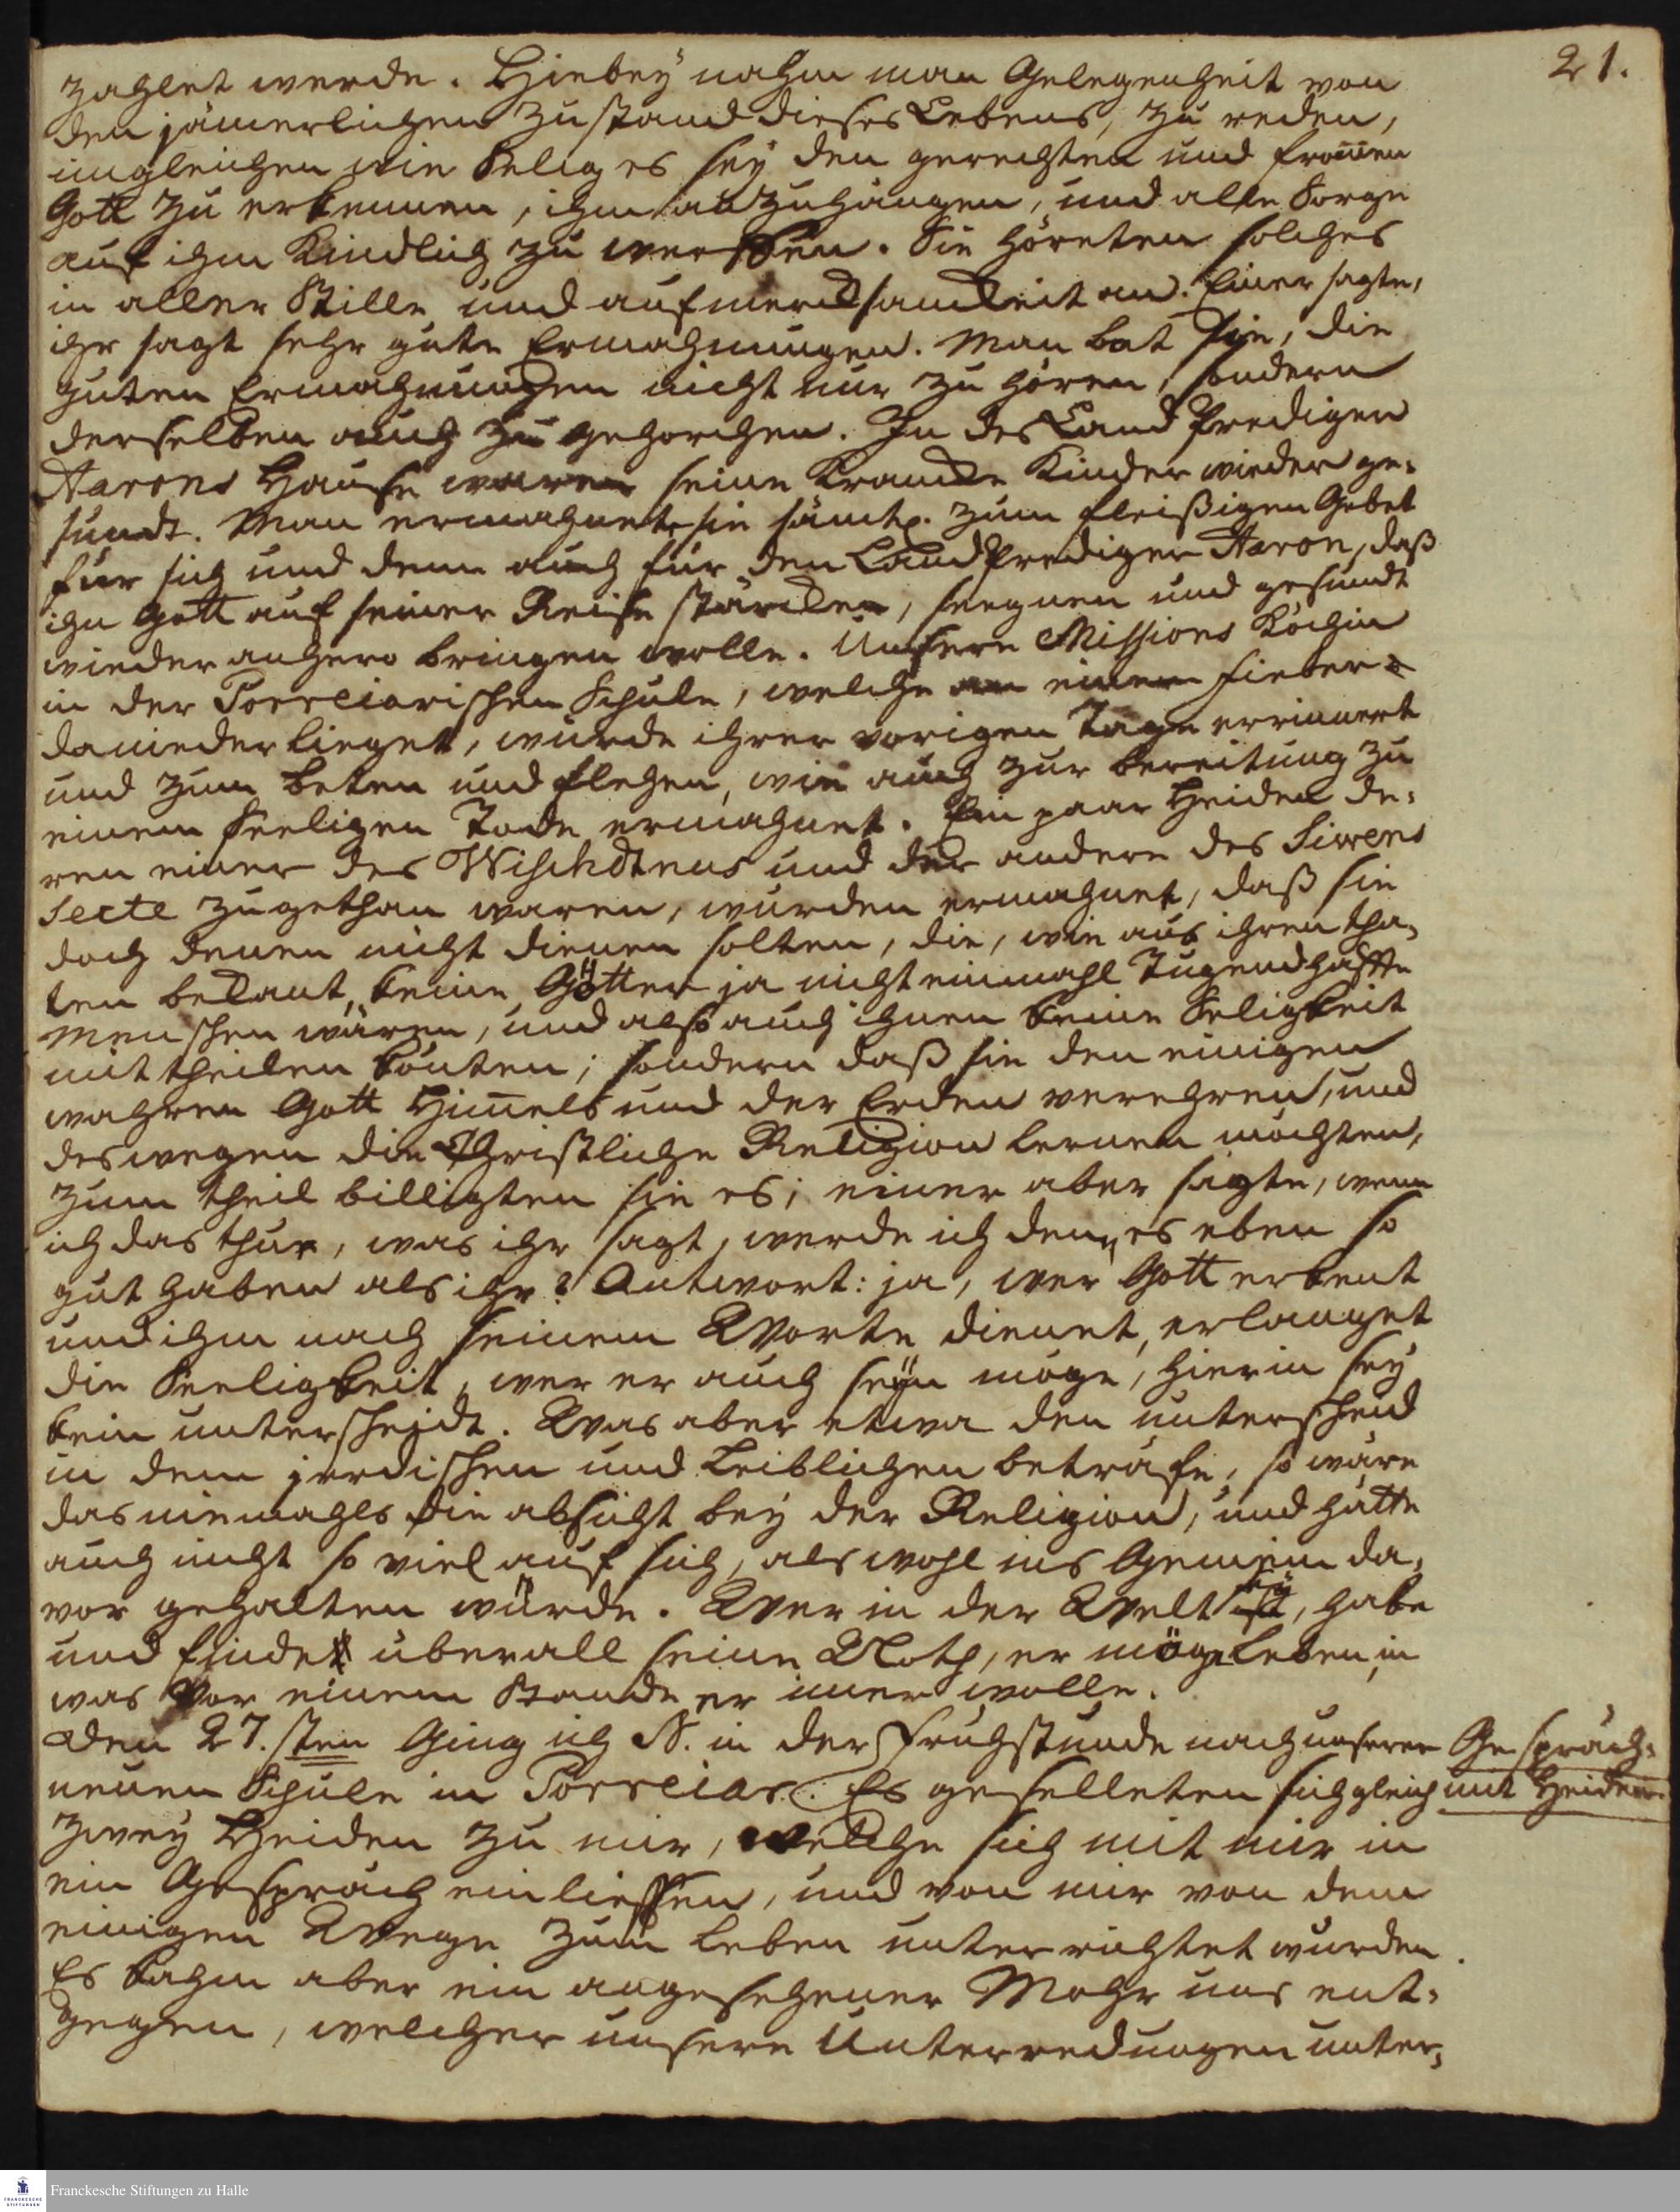 21.
zahlet werde. Hiebey nahm man Gelegenheit von
den jämerlichen Zustand dieses Lebens, zu reden,
imgleichen wie Selig es sey den gerechten und from̅en
Gott zu erkennen, ihm anzuhangen, und alle Sorge
auf ihm Kindlich zu werffen. Sie höreten solches
in aller Stille und aufmercksamkeit an. Einer sagte,
ihr sagt sehr gute Ermahnungen. Man bat sie, die
guten Ermahnungen nicht nur zu hören, sondern
derselben auch zu gehorchen. In des Land Predigers
Aarons Hause waren seine Krancke Kinder wieder ge-
sundt. Man ermahnete sie sämtl. zum fleißigen Gebet
für sich und denn auch für den Land Prediger Aaron, daß
ihn Gott auf seiner Reise stärcken, seegnen und gesundt
wieder anhero bringen wolle. Unsere Missions Köchin
in der Porreiarischen Schule, welche an einem Fieber
danieder lieget, wurde ihrer vorigen Tage errinnert
und zum beten und flehen, wie auch zur bereitung zu
einem Seeligen Tode ermahnet. Ein paar Heiden de-
ren einer des Wischdtnus und der andere des Siwens
Secte zugethan waren, wurden ermahnet, daß sie
doch denen nicht dienen solten, die, wie aus ihren tha-
ten bekant, keine Götter ja nicht einmahl Tugendhaffte
Menschen wären, und also auch ihnen keine Seligkeit
mittheilen könten; sondern daß sie den einigen
wahren Gott Him̅els und der Erden verehren, und
deswegen die Christliche Religion lernen möchten,
zum theil billigten sie es; einer aber sagte, wenn
ich das thue, was ihr sagt, werde ich denn es eben so
gut haben als ihr? Antwort: ja, wer Gott erkent
und ihm nach seinem Worte dienet, erlanget
die Seeligkeit, wer er auch seyn möge, hierin sey
kein unterscheidt. Was aber etwa den unterscheid
in dem jrrdischen und Leiblichen beträfe, so wäre
das niemahls die absicht bey der Religion, und hätte
auch nicht so viel auf sich, als wohl ins Gemein da-
vor gehalten würde. Wer in der Welt sey, habe
und finde überall seine Noth, er möge Leben, in
was vor einem Stande er im̅er wolle.
Den 27.sten Ging ich S. in der Frühstunde nach unserer
Gespräch
mit Heiden.
neuen Schule in Porreiar. Es geselleten sich gleich
zwey Heiden zu mir, welche sich mit mir in
ein Gespräch einliessen, und von mir von dem
einigen Wege zum Leben unterrichtet wurden.
Es kahm aber ein angesehener Mohr uns ent-
gegen, welcher unsere Unterredungen unter-
Franckesche Stiftungen zu Halle